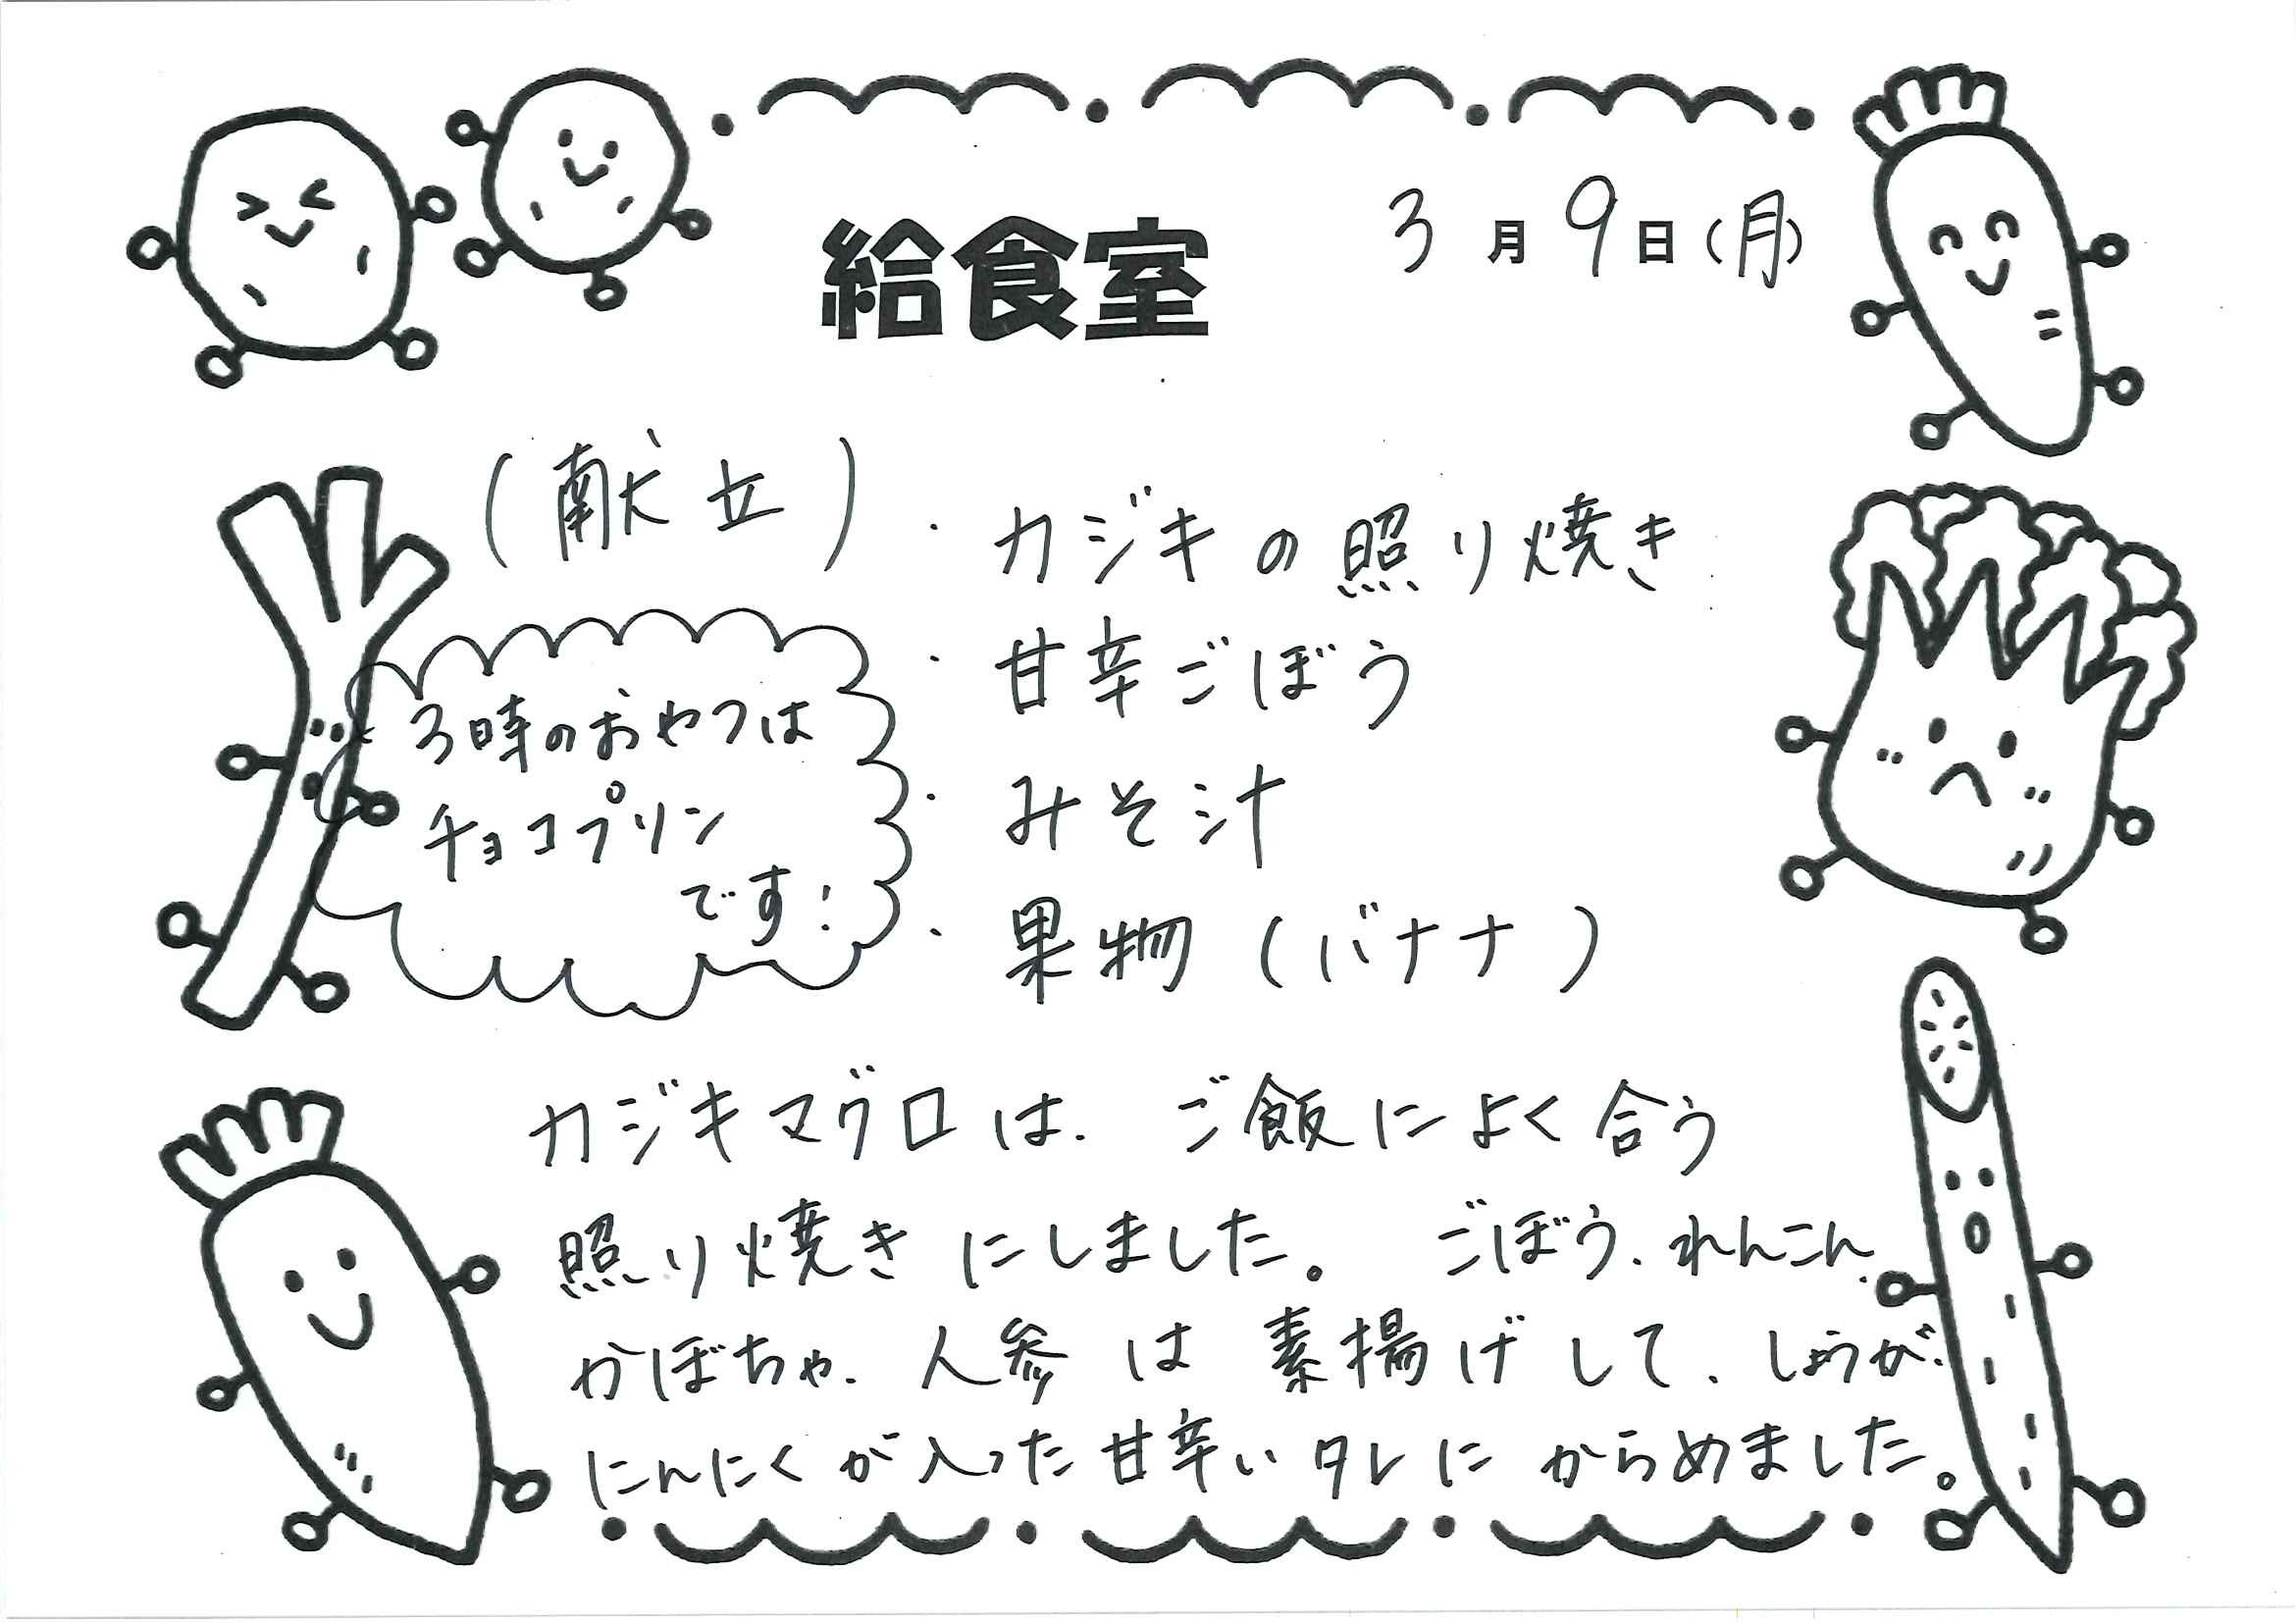 給食室
3月9日(月)
(献立)
・カジキの照り焼き
・甘辛ごぼう
・みそ汁
・果物(バナナ)
3時のおやつは
チョコプリン
です!
カジキマグロは、ご飯によく合う
照り焼きにしました。 ごぼう、れんこん、
かぼちゃ、人参は素揚げして、しょうが、
にんにくが入った甘辛いタレにからめました。